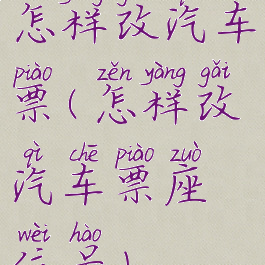 怎样改汽车
piào zěn yàng gǎi
票(怎样改
qì chē piào zuò
汽车票座
wèi hào
位号)